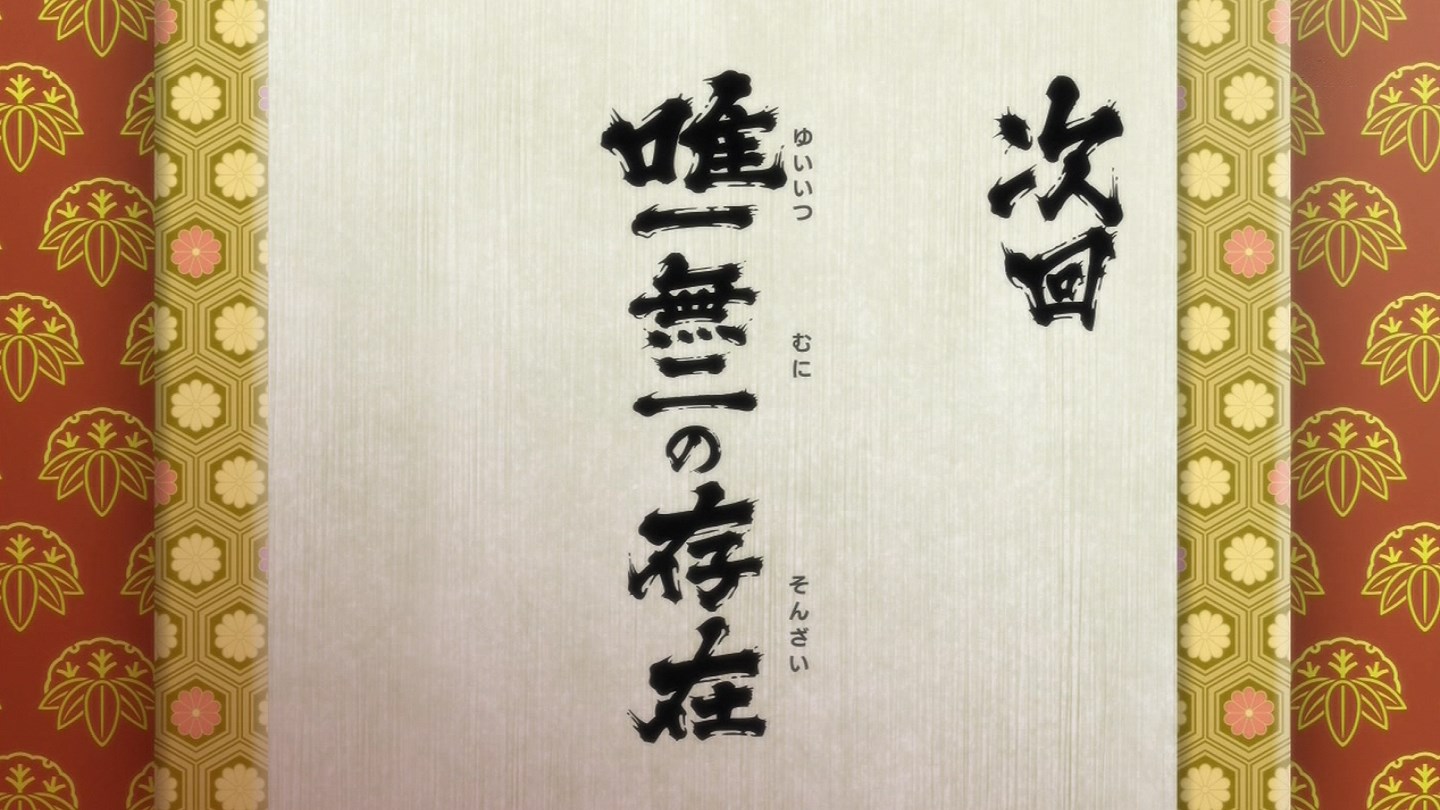 次回
唯一無二の存在
ゆいいつ
むに
そんざい